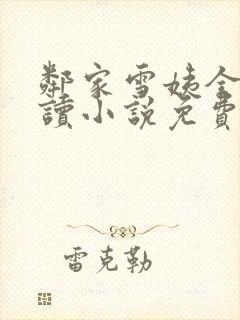 鄰家雪姨全
讀小說免費
雷克勒